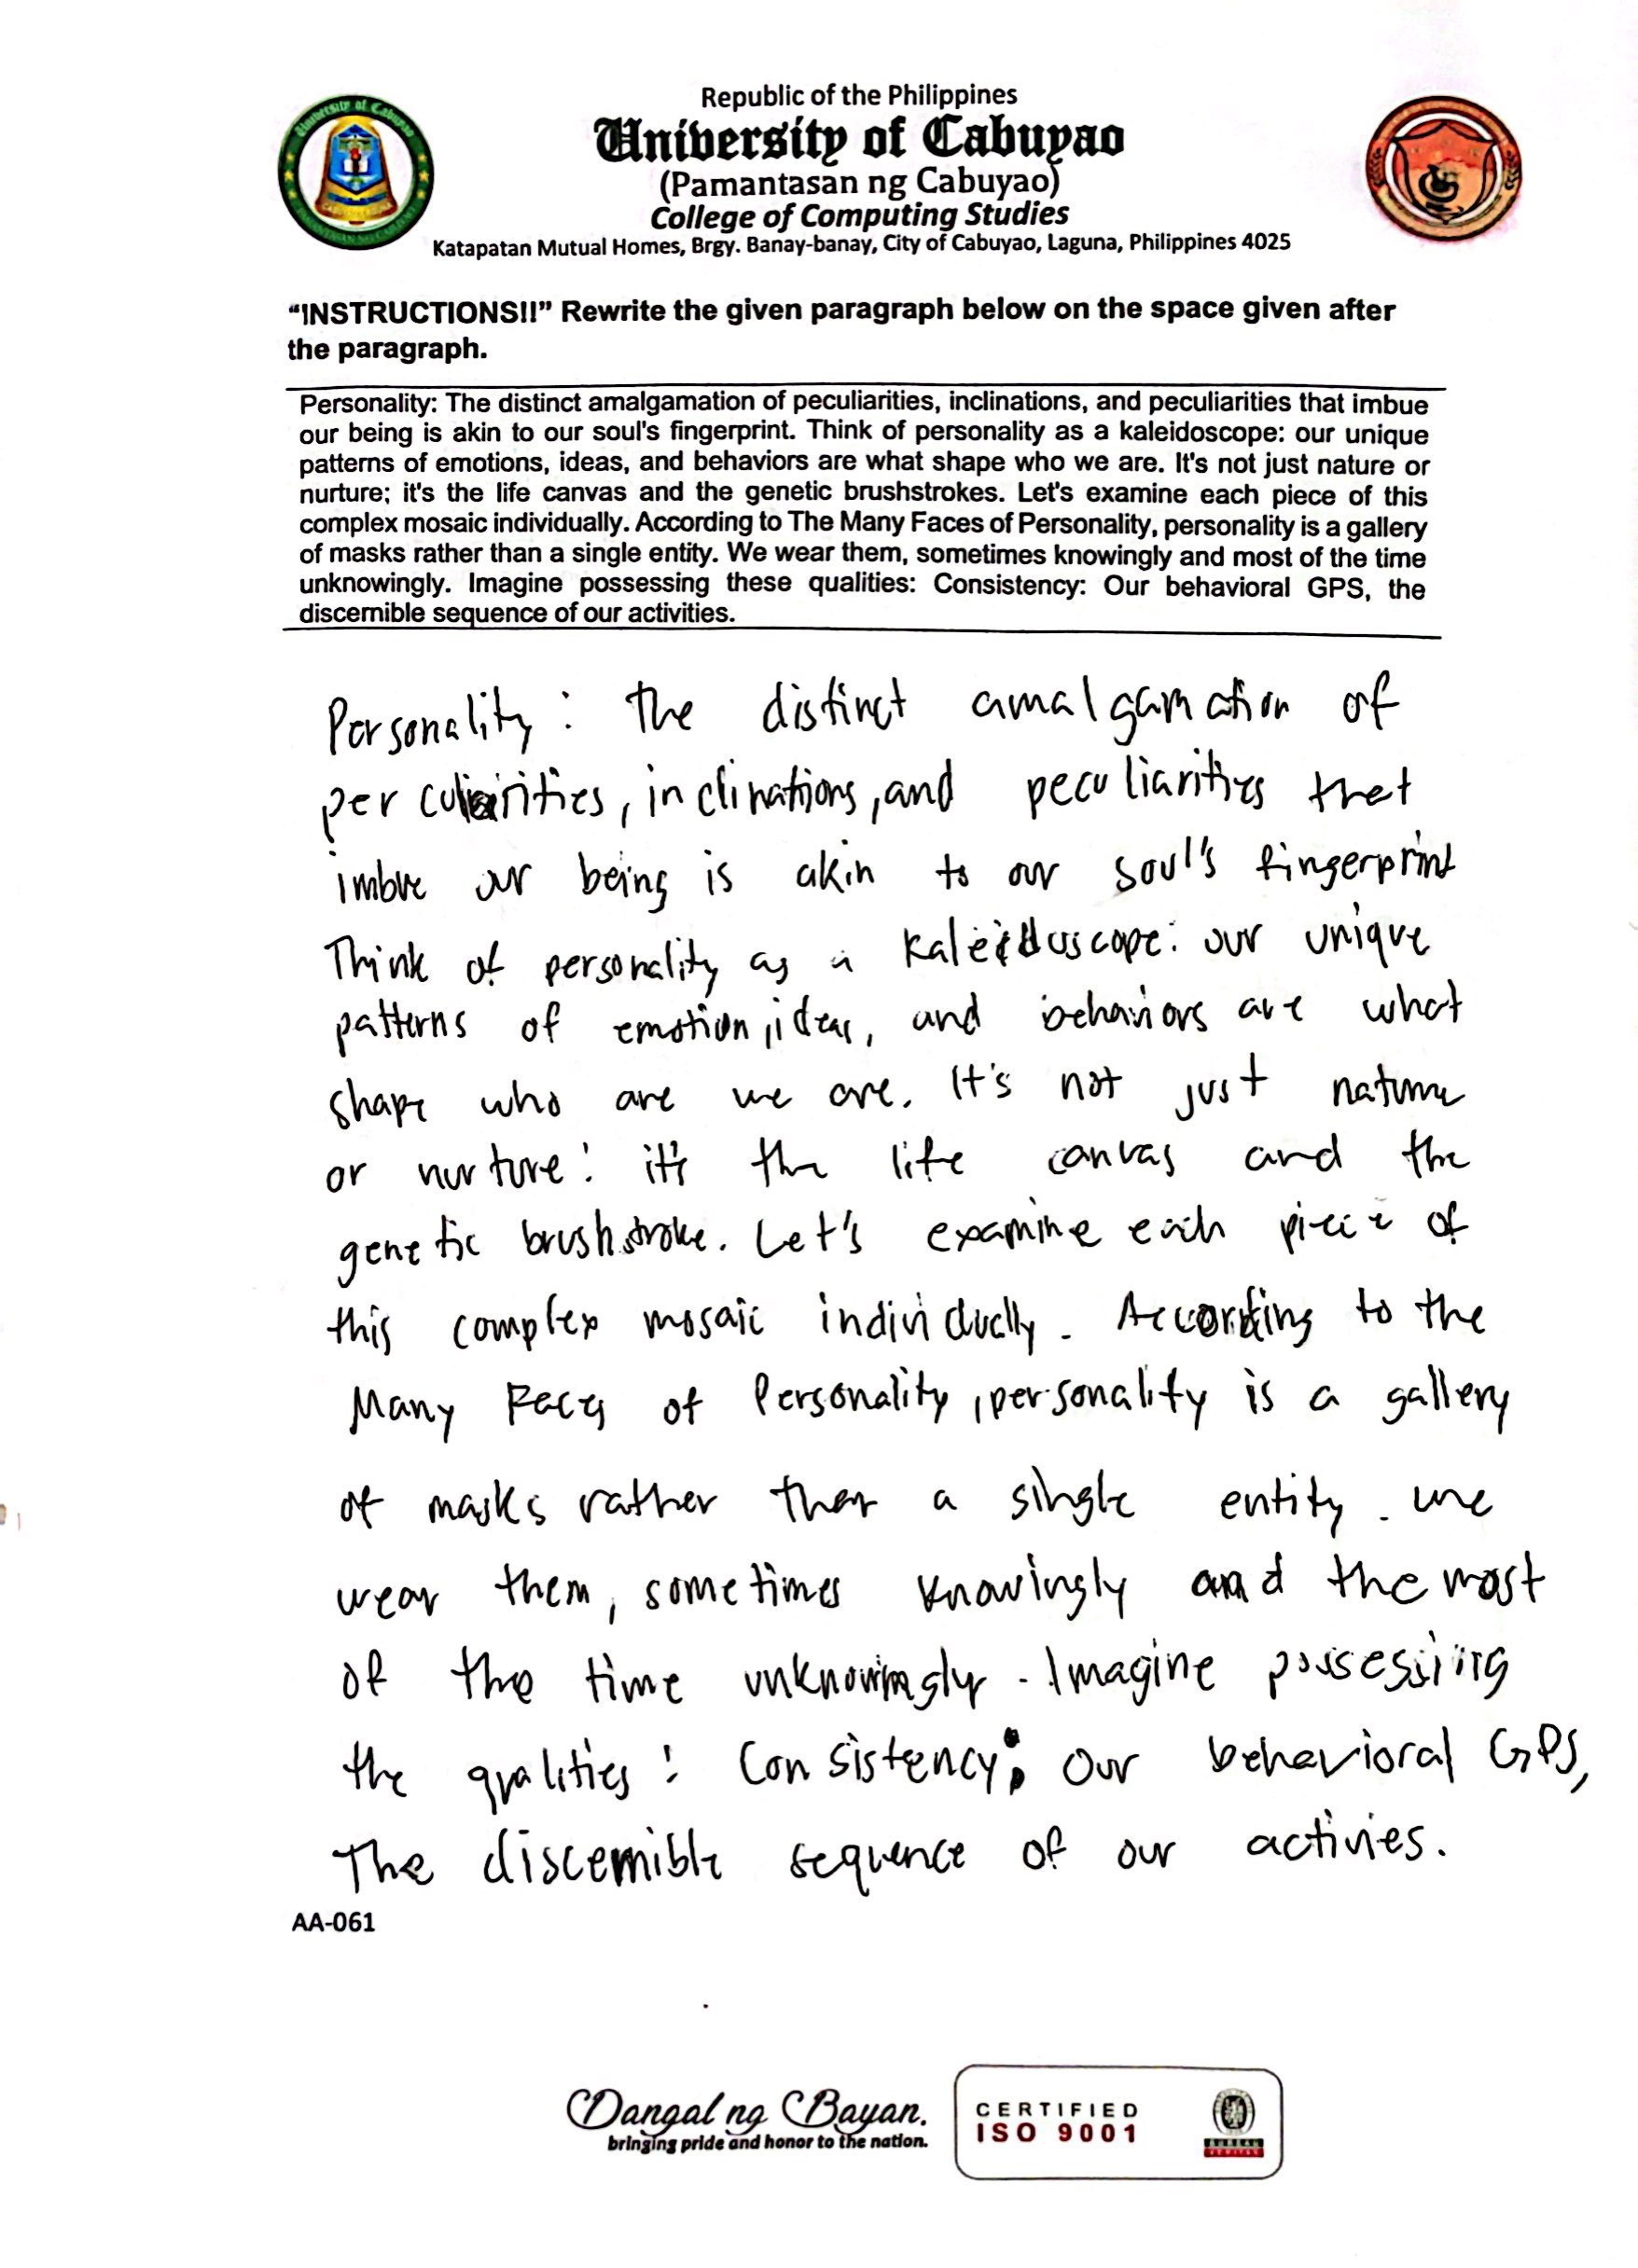 Republic of the Philippines
University of Cabuyao
(Pamantasan ng Cabuyao)
College of Computing Studies
Katapatan Mutual Homes, Brgy. Banay-banay, City of Cabuyao, Laguna, Philippines 4025
“INSTRUCTIONS!!” Rewrite the given paragraph below on the space given after
the paragraph.
Personality: The distinct amalgamation of peculiarities, inclinations, and peculiarities that imbue
our being is akin to our soul's fingerprint. Think of personality as a kaleidoscope: our unique
patterns of emotions, ideas, and behaviors are what shape who we are. It's not just nature or
nurture; it's the life canvas and the genetic brushstrokes. Let's examine each piece of this
complex mosaic individually. According to The Many Faces of Personality, personality is a gallery
of masks rather than a single entity. We wear them, sometimes knowingly and most of the time
unknowingly. Imagine possessing these qualities: Consistency: Our behavioral GPS, the
discernible sequence of our activities.
Personality: The distinct amalgamation of
perculiarities, inclinations, and peculiarities that
imbue our being is akin to our soul's fingerprint
Think of personality as a kaleidoscope: our unique
patterns of emotion, ideas, and behaviors are what
shape who are we are. It's not just nature
or nurture: it's the life canvas and the
genetic brushstroke. Let's examine each piece of
this complex mosaic individually. According to the
Many Faces of Personality, personality is a gallery
of masks rather than a single entity. we
wear them, sometimes knowingly and the most
of the time unknowingly. Imagine possessing
the qualities: Consistency: Our behavioral GPS,
The discernible sequence of our activies.
AA-061
Dangal ng Bayan.
bringing pride and honor to the nation.
CERTIFIED
ISO 9001
BUREAU
VERITAS